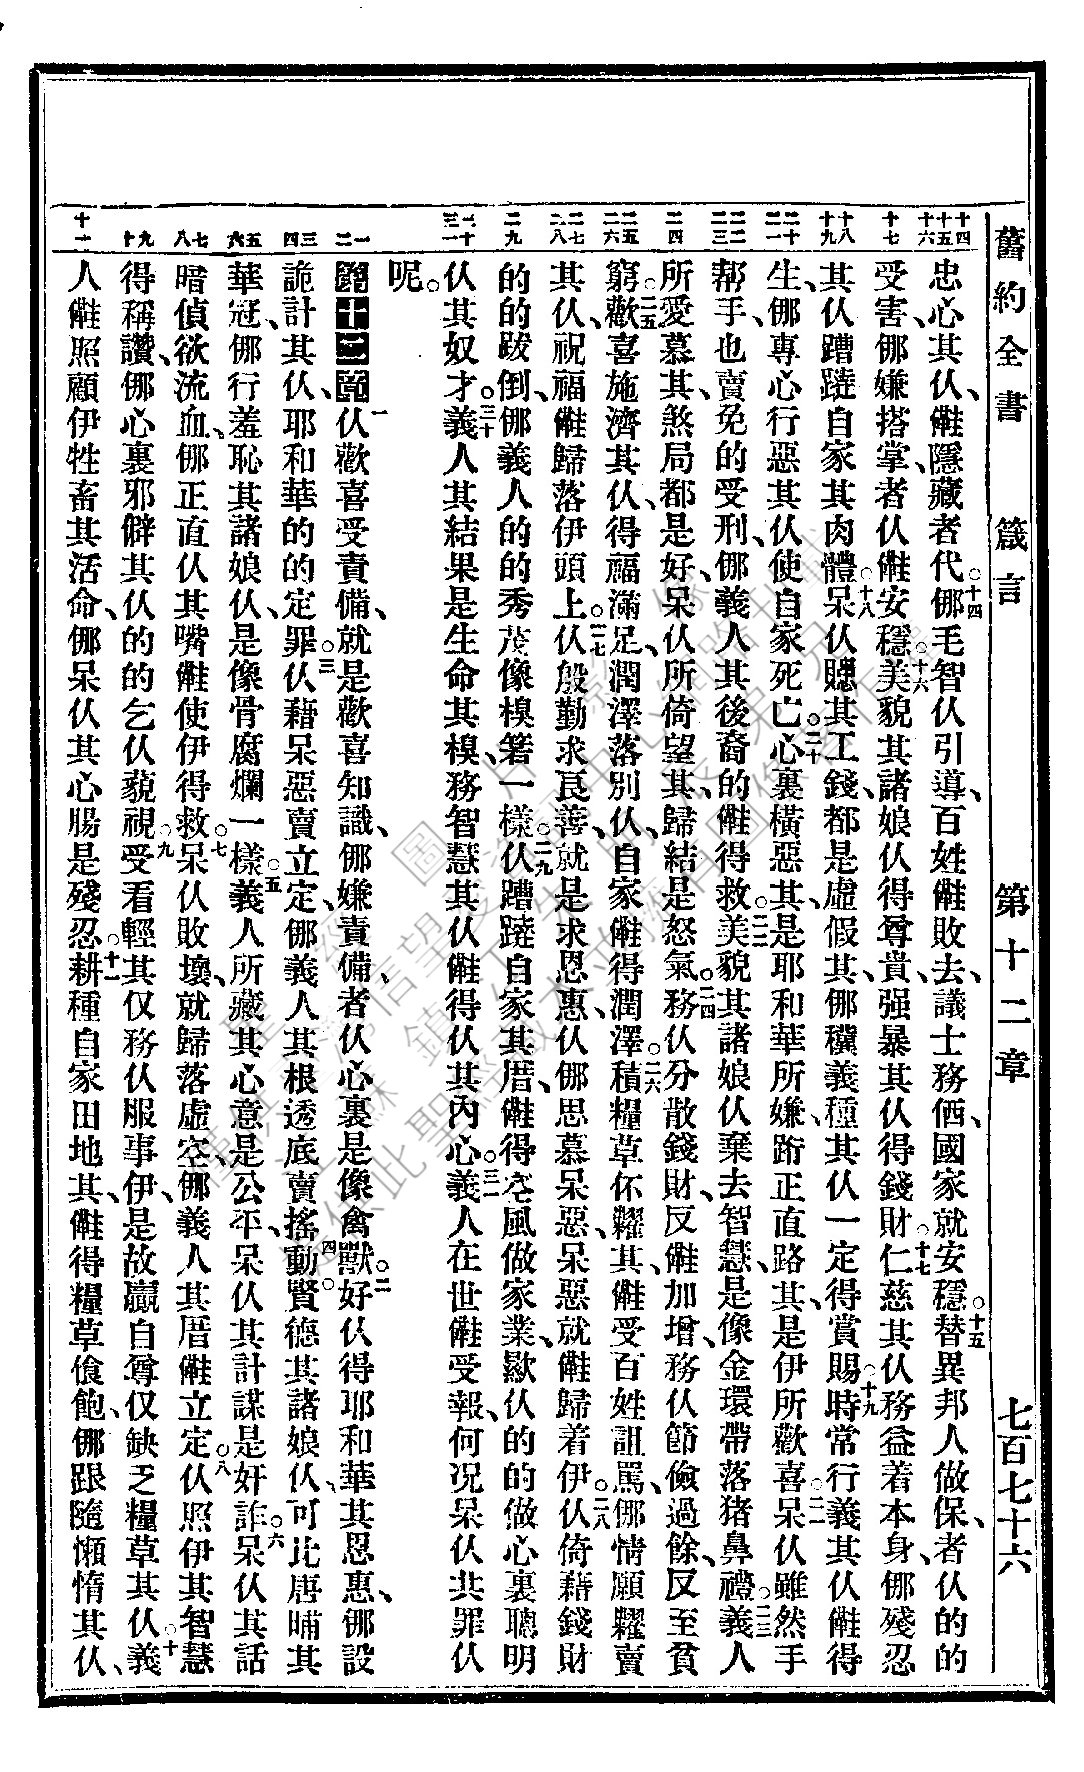 舊約全書 箴言 第十二章 七百七十六
忠心其仈、㒨隱藏者代。十四 㑚毛智仈引導、百姓㒨敗去、議士務㑚國家就安穩。十五 替異邦人做保、者仈的的
受害、㑚嫌搭掌者仈㒨安穩。十六 美貌其諸娘仈得尊貴、强暴其仈得錢財。十七 仁慈其仈務益着本身、㑚殘忍
其仈蹧躂自家其肉體。十八 呆仈賜其工錢、都是虛假其、㑚穬義種其仈一定得賞賜。十九 時常行義其仈㒨得
生、㑚專心行惡其仈使自家死亡。二十 心裏橫惡其、是耶和華所嫌、跨正直路其、是伊所歡喜。二一 呆仈雖然手
帮手、也賣免的受刑、㑚義人其後裔的㒨得救。二二 美貌其諸娘仈棄去智慧、是像金環帶落猪鼻禮。二三 義人
所愛慕其、煞局都是好、呆仈所倚望其、歸結是怒氣。二四 務仈分散錢財、反㒨加增、務仈節儉過餘、反至貧
窮。二五 歡喜施濟其仈、得福滿足、潤澤落別仈、自家㒨得潤澤。二六 積糧草伓糶其、㒨受百姓詛罵、㑚情願糶賣
其仈、祝福㒨歸落伊頭上。二七 仈殷勤求良善、就是求恩惠、仈㑚思慕呆惡、呆惡就㒨歸着伊。二八 仈倚藉錢財
的的跋倒、㑚義人的的秀茂像樑箬一樣。二九 仈蹧躂自家其厝、㒨得颩風做家業、歞仈的的做心裏聰明
仈其奴才。三十 義人其結果是生命其樑、務智慧其仈㒨得仈其內心。三一 義人在世㒨受報、何况呆仈共罪仈
呢。
第十二章 一 仈歡喜受責備、就是歡喜知識、㑚嫌責備者仈心裏是像禽獸。二 好仈得耶和華其恩惠、㑚設
詭計其仈、耶和華的的定罪。三 仈藉呆惡賣立定、㑚義人其根透底賣搖動。四 賢德其諸娘仈、可比唐晡其
華冠、㑚行羞恥其諸娘仈、是像骨腐爛一樣。五 義人所藏其心意是公平、呆仈其計謀是奸詐。六 呆仈其話
暗偵欲流血、㑚正直仈其嘴㒨使伊得救。七 呆仈敗壞、就歸落虛空、㑚義人其厝㒨立定。八 仈照伊其智慧
得稱讚、㑚心裏邪僻其仈的的乞仈藐視。九 受看輕其仅務仈服事伊、是故贏自尊仅缺乏糧草其仈。十 義
人㒨照顧伊牲畜其活命、㑚呆仈其心腸是殘忍。十一 耕種自家田地其、㒨得糧草飧飽、㑚跟隨懶惰其仈、